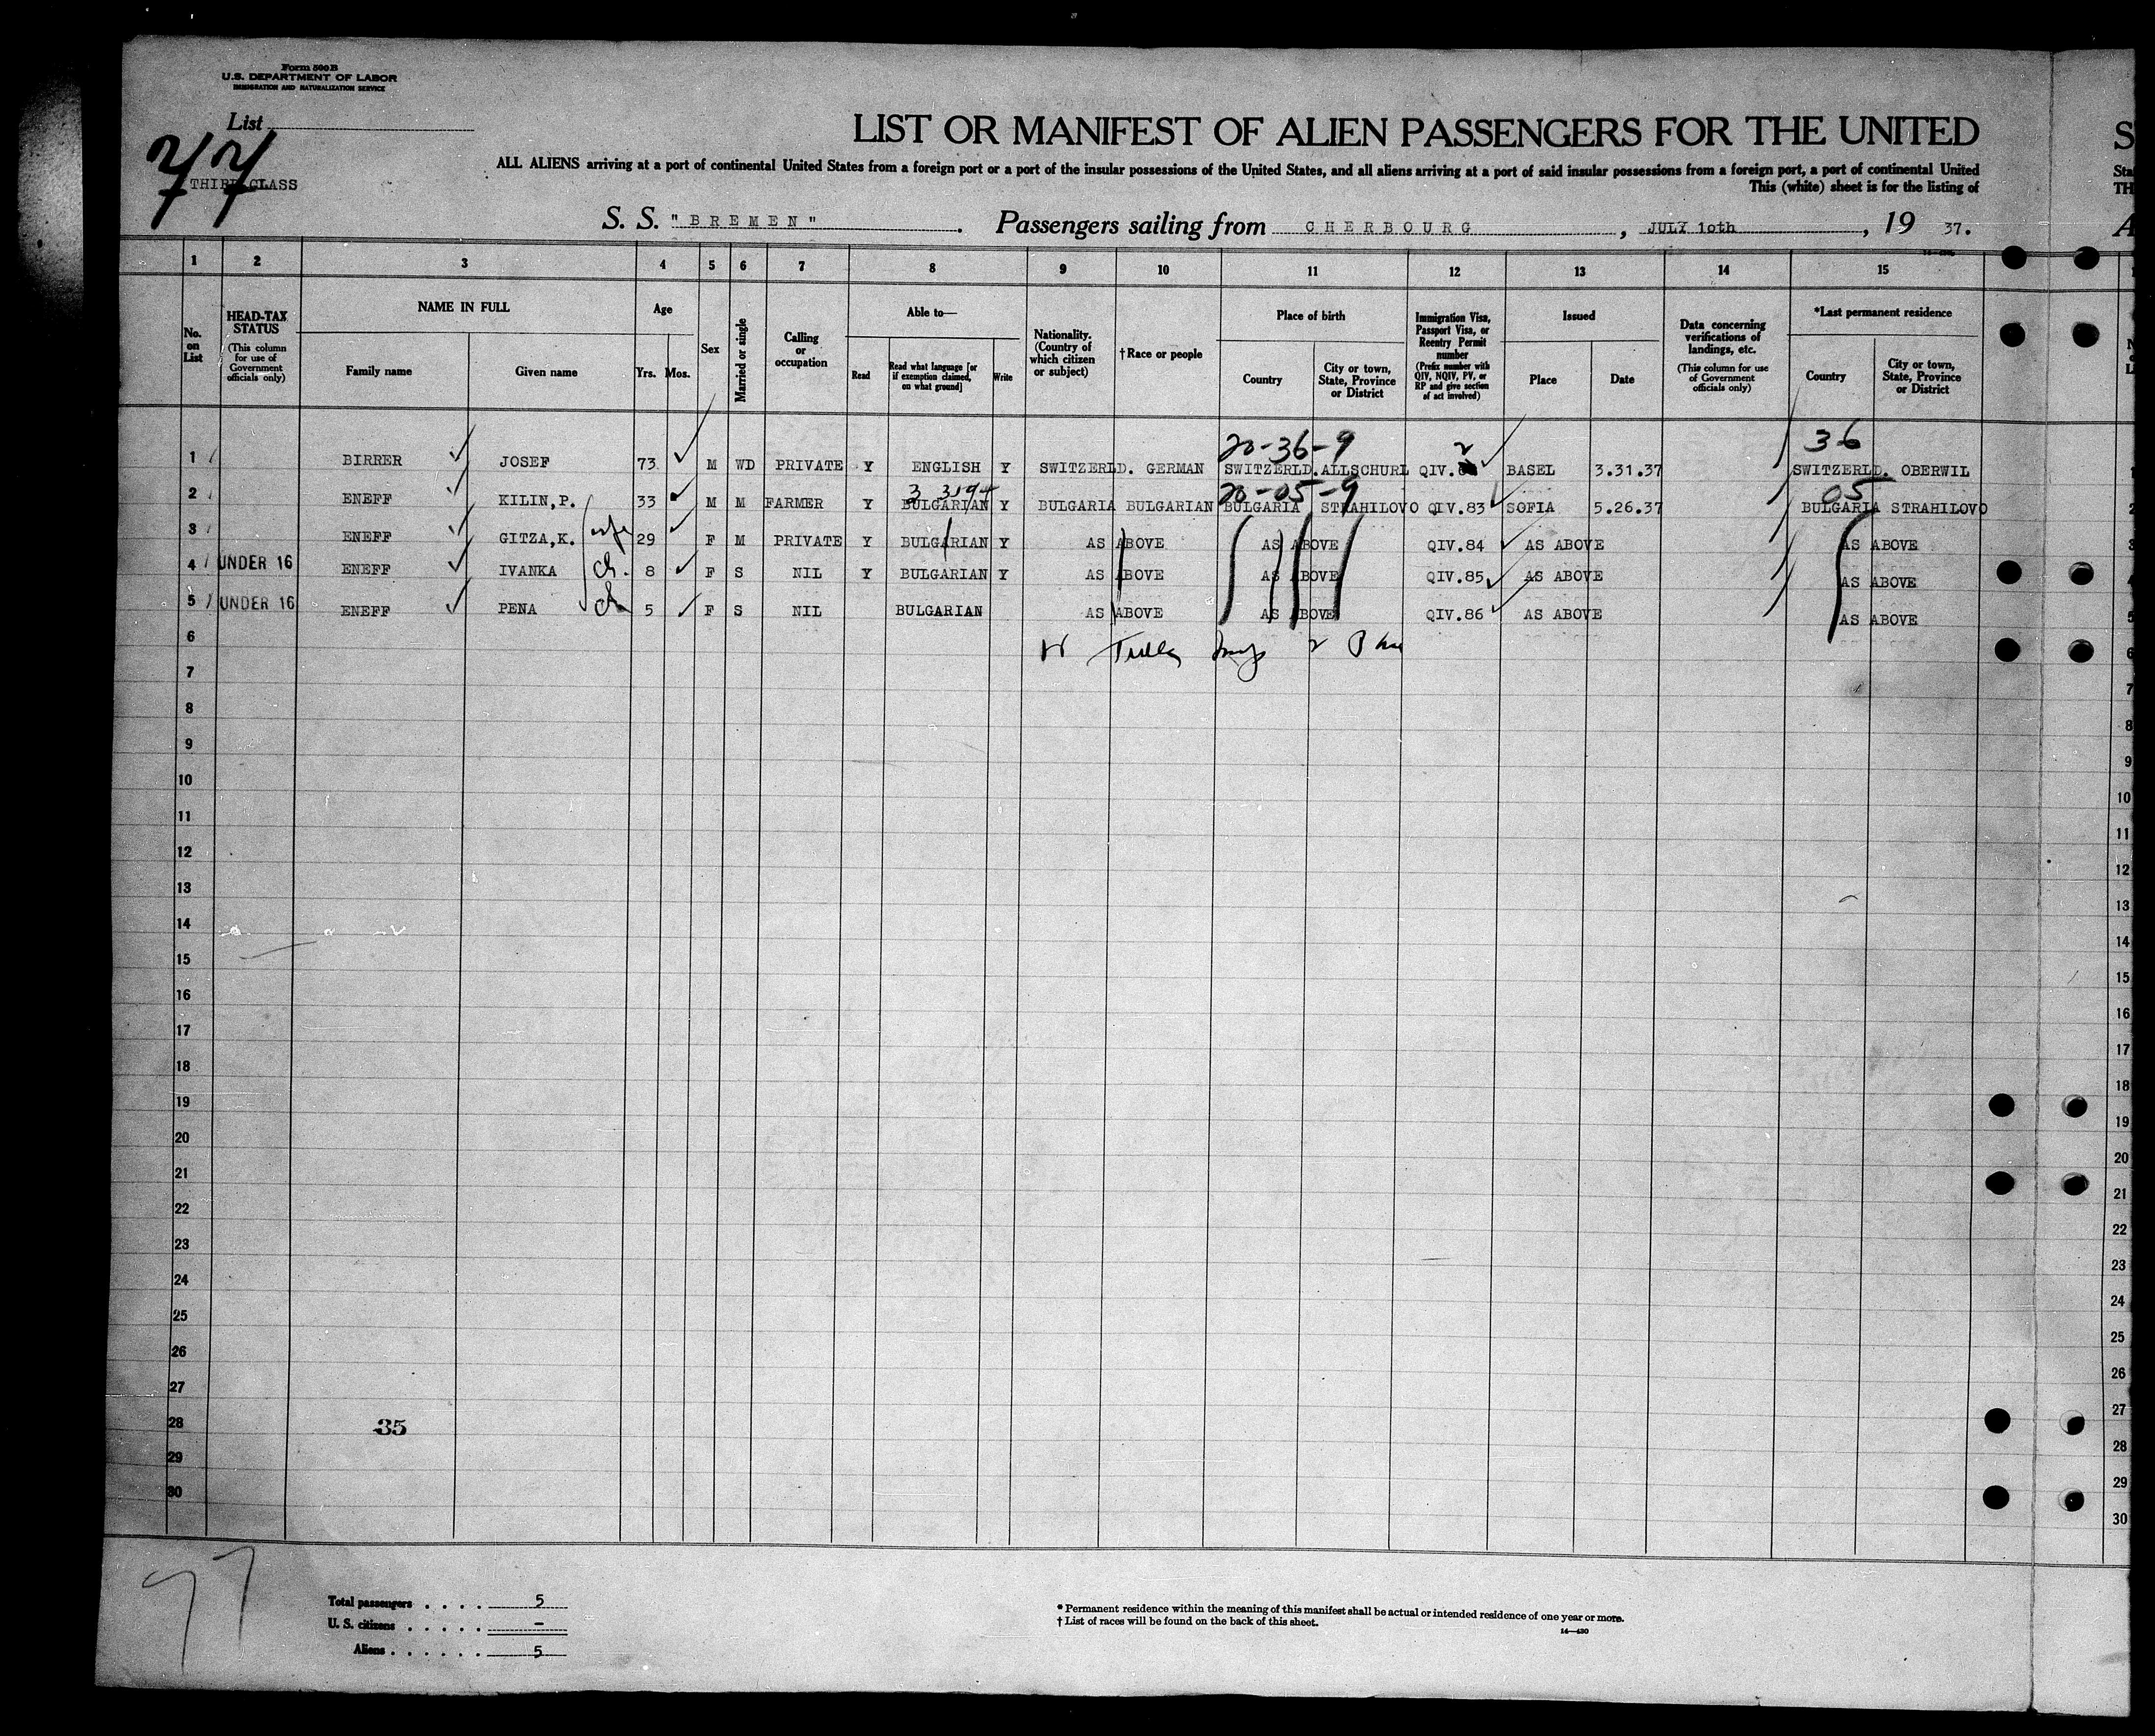 Form 500B
U.S. DEPARTMENT OF LABOR
IMMIGRATION AND NATURALIZATION SERVICE
List
77
THIRD CLASS
LIST OR MANIFEST OF ALIEN PASSENGERS FOR THE UNITED
ALL ALIENS arriving at a port of continental United States from a foreign port or a port of the insular possessions of the United States, and all aliens arriving at a port of said insular possessions from a foreign port, a port of continental United
This (white) sheet is for the listing of
S. S. "BREMEN". Passengers sailing from CHERBOURG, JULY 10th, 19 37.
1 2 3 4 5 6 7 8 9 10 11 12 13 14 15
No. on List
HEAD-TAX STATUS (This column for use of Government officials only)
NAME IN FULL
Family name Given name
Age
Yrs. Mos.
Sex
Married or single
Calling or occupation
Able to—
Read Read what language [or if exemption claimed, on what ground] Write
Nationality. (Country of which citizen or subject)
†Race or people
Place of birth
Country City or town, State, Province or District
Immigration Visa, Passport Visa, or Reentry Permit number (Prefix number with QIV, NQIV, PV, or RP and give section of act involved)
Issued
Place Date
Data concerning verifications of landings, etc. (This column for use of Government officials only)
*Last permanent residence
Country City or town, State, Province or District
20-36-9 2 36
1 BIRRER JOSEF 73 M WD PRIVATE Y ENGLISH Y SWITZERLD. GERMAN SWITZERLD. ALLSCHURL QIV. BASEL 3.31.37 SWITZERLD. OBERWIL
20-05-9 05
2 ENEFF KILIN,P. 33 M M FARMER Y BULGARIAN Y BULGARIA BULGARIAN BULGARIA STRAHILOVO QIV.83 SOFIA 5.26.37 BULGARIA STRAHILOVO
3 ENEFF GITZA,K. wife 29 F M PRIVATE Y BULGARIAN Y AS ABOVE AS ABOVE QIV.84 AS ABOVE AS ABOVE
4 UNDER 16 ENEFF IVANKA ch. 8 F S NIL Y BULGARIAN Y AS ABOVE AS ABOVE QIV.85 AS ABOVE AS ABOVE
5 UNDER 16 ENEFF PENA ch 5 F S NIL BULGARIAN AS ABOVE AS ABOVE QIV.86 AS ABOVE AS ABOVE
6
7
8
9
10
11
12
13
14
15
16
17
18
19
20
21
22
23
24
25
26
27
28 35
29
30
77
Total passengers . . . . 5
U. S. citizens . . . . . –
Aliens . . . . . . 5
* Permanent residence within the meaning of this manifest shall be actual or intended residence of one year or more.
† List of races will be found on the back of this sheet.
14—430